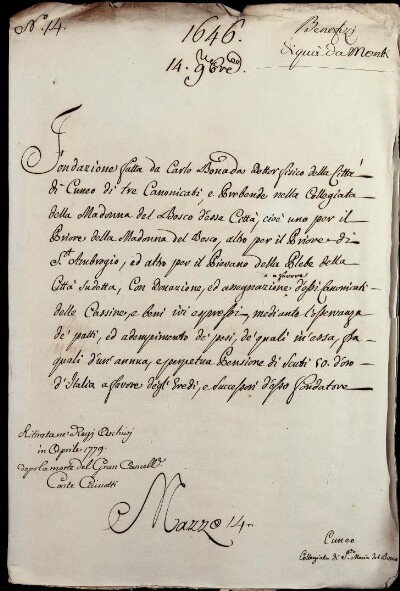 N.º 14.
1646.
14. 9bre
Benefizj
di quà da Monti
Fondazione fatta da Carlo Bonada Dottor fisico della Città
di Cuneo di tre Canonicati, e Prebende nella Collegiata
della Madonna del Bosco d'essa Città, cioè uno per il
Priore della Madonna del Bosco, altro per il Priore di
S.t Ambrogio, ed altro per il Pievano della Plebe della
Città sudetta, Con Donazione, ed assegnazione a favore d'essi Canonicati
delle Cassine, e beni ivi espressi, mediante l'osservanza
de' patti, ed adempimento de' pesi, de' quali in essa, fra
quali d'un' annua, e perpetua Pensione di Scuti 50. d'oro
d'Italia a favore degl'Eredi, e successori d'esso fondatore
Ritirata ne Regj Archivj
in Aprile 1779.
dopo la morte del Gran Cancell.e
Conte
Mazzo 14
Cuneo
Collegiata di S.ta Maria del Bosco